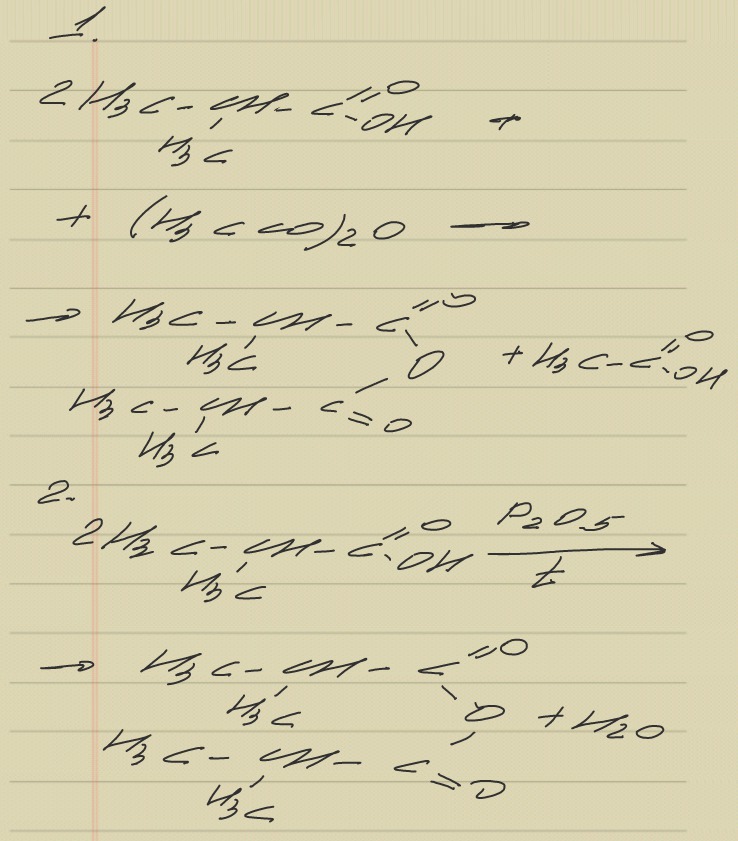 1.
2 H3C - CH - C =O
- OH +
H3C
+ (H3C CO)2O →
→ H3C - CH - C =O
H3C O + H3C - C =O - OH
H3C - CH - C =O
H3C
2.
2 H3C - CH - C =O - OH P2O5
t
H3C
→ H3C - CH - C =O
H3C O + H2O
H3C - CH - C =O
H3C